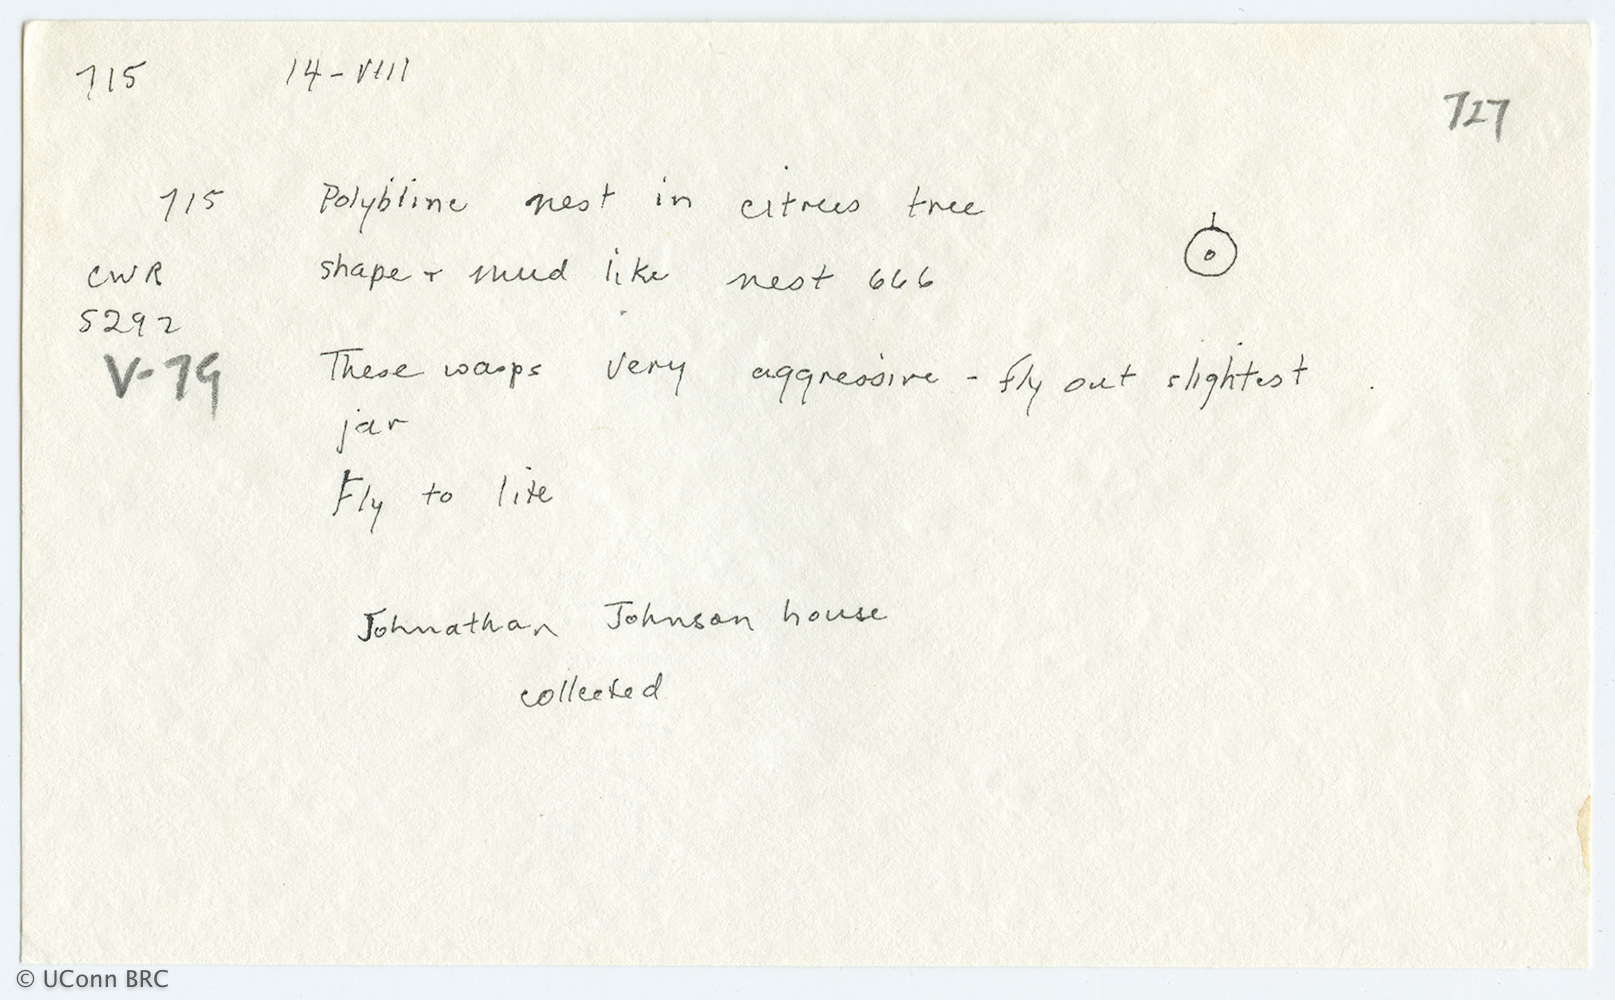 715 14-VIII
727
715 Polybiine nest in citrus tree
CWR shape + mud like nest 666
5292
V-79 These wasps very aggressive - fly out slightest
jar
Fly to lite
Johnathan Johnson house
collected
© UConn BRC